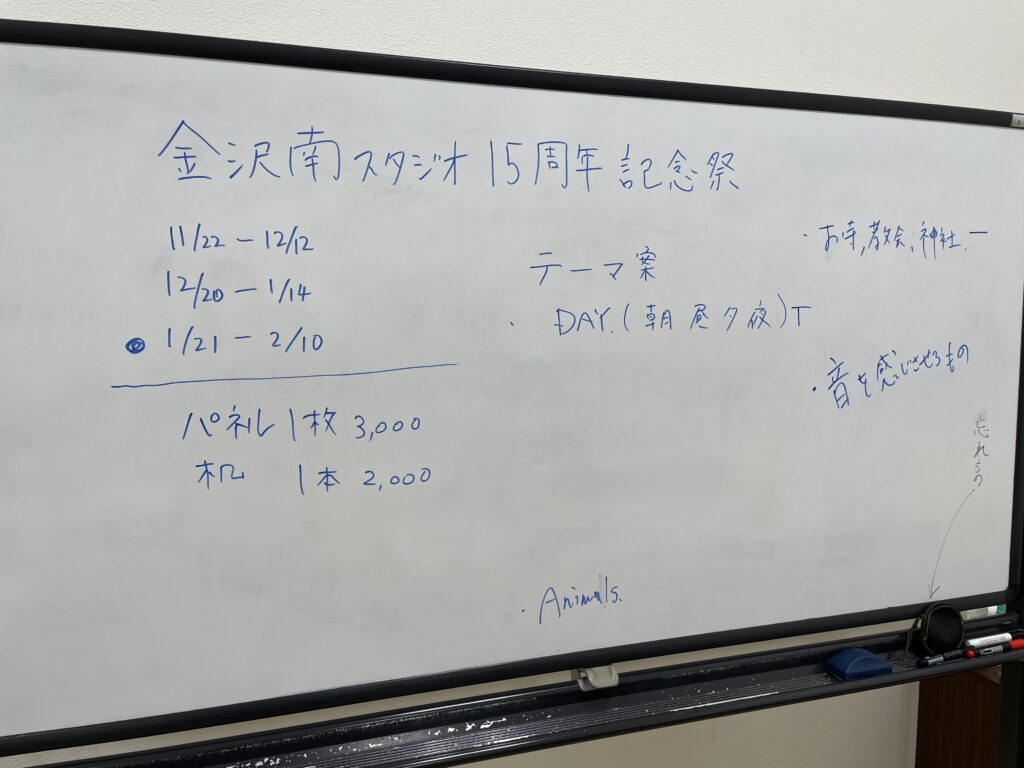 金沢南スタジオ 15周年記念祭
11/22 － 12/12
12/20 － 1/14
● 1/21 － 2/10
パネル 1枚 3,000
机 1本 2,000
テーマ案
・ DAY.(朝 昼 夕 夜)T
・お寺,教会,神社.ー
・音を感じさせるもの
忘れもの
・Animals.